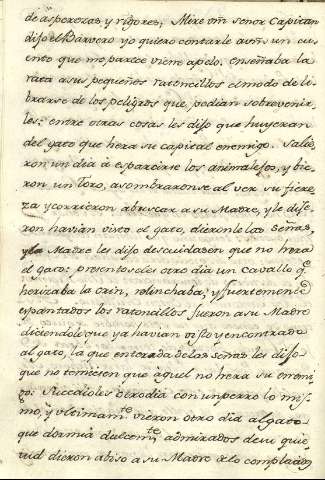 de asperezas y rigores; Mire vm̃ señor Capitan
dijo el Barvero yo quiero contarle a vm̃ un cu
ento que me parece viene a pelo. enseñaba la
rata a sus pequeños ratoncillos el modo de li
brarse de los peligros que podian sobrevenir
les; entre otras cosas les dijo que huyeran
del gato que hera su capital enemigo. Salie
ron un dia á esparcirse los animalejos, y bie
ron un toro, asombraronse al ver su fiere
za y corrieron abuscar a su Madre, y le dije
ron havian visto el gato, dieronle las señas,
y la Madre les dijo descuidasen que no hera
el gato: presentoseles otro dia un cavallo q.e
herizaba la crin, relinchaba; y fuertemente
espantados los ratoncillos fueron a su Madre
diciendole que ya havian visto y encontrado
al gato, la que enterada de las señas les dijo
que no temiesen que aquel no hera su enemi
go: Succedioles otro dia con un perro lo mis
mo, y ultimam.te vieron otro dia al gato
que dormia dulcem.te admirados de su quie
tud dieron abiso a su Madre de lo complacidos